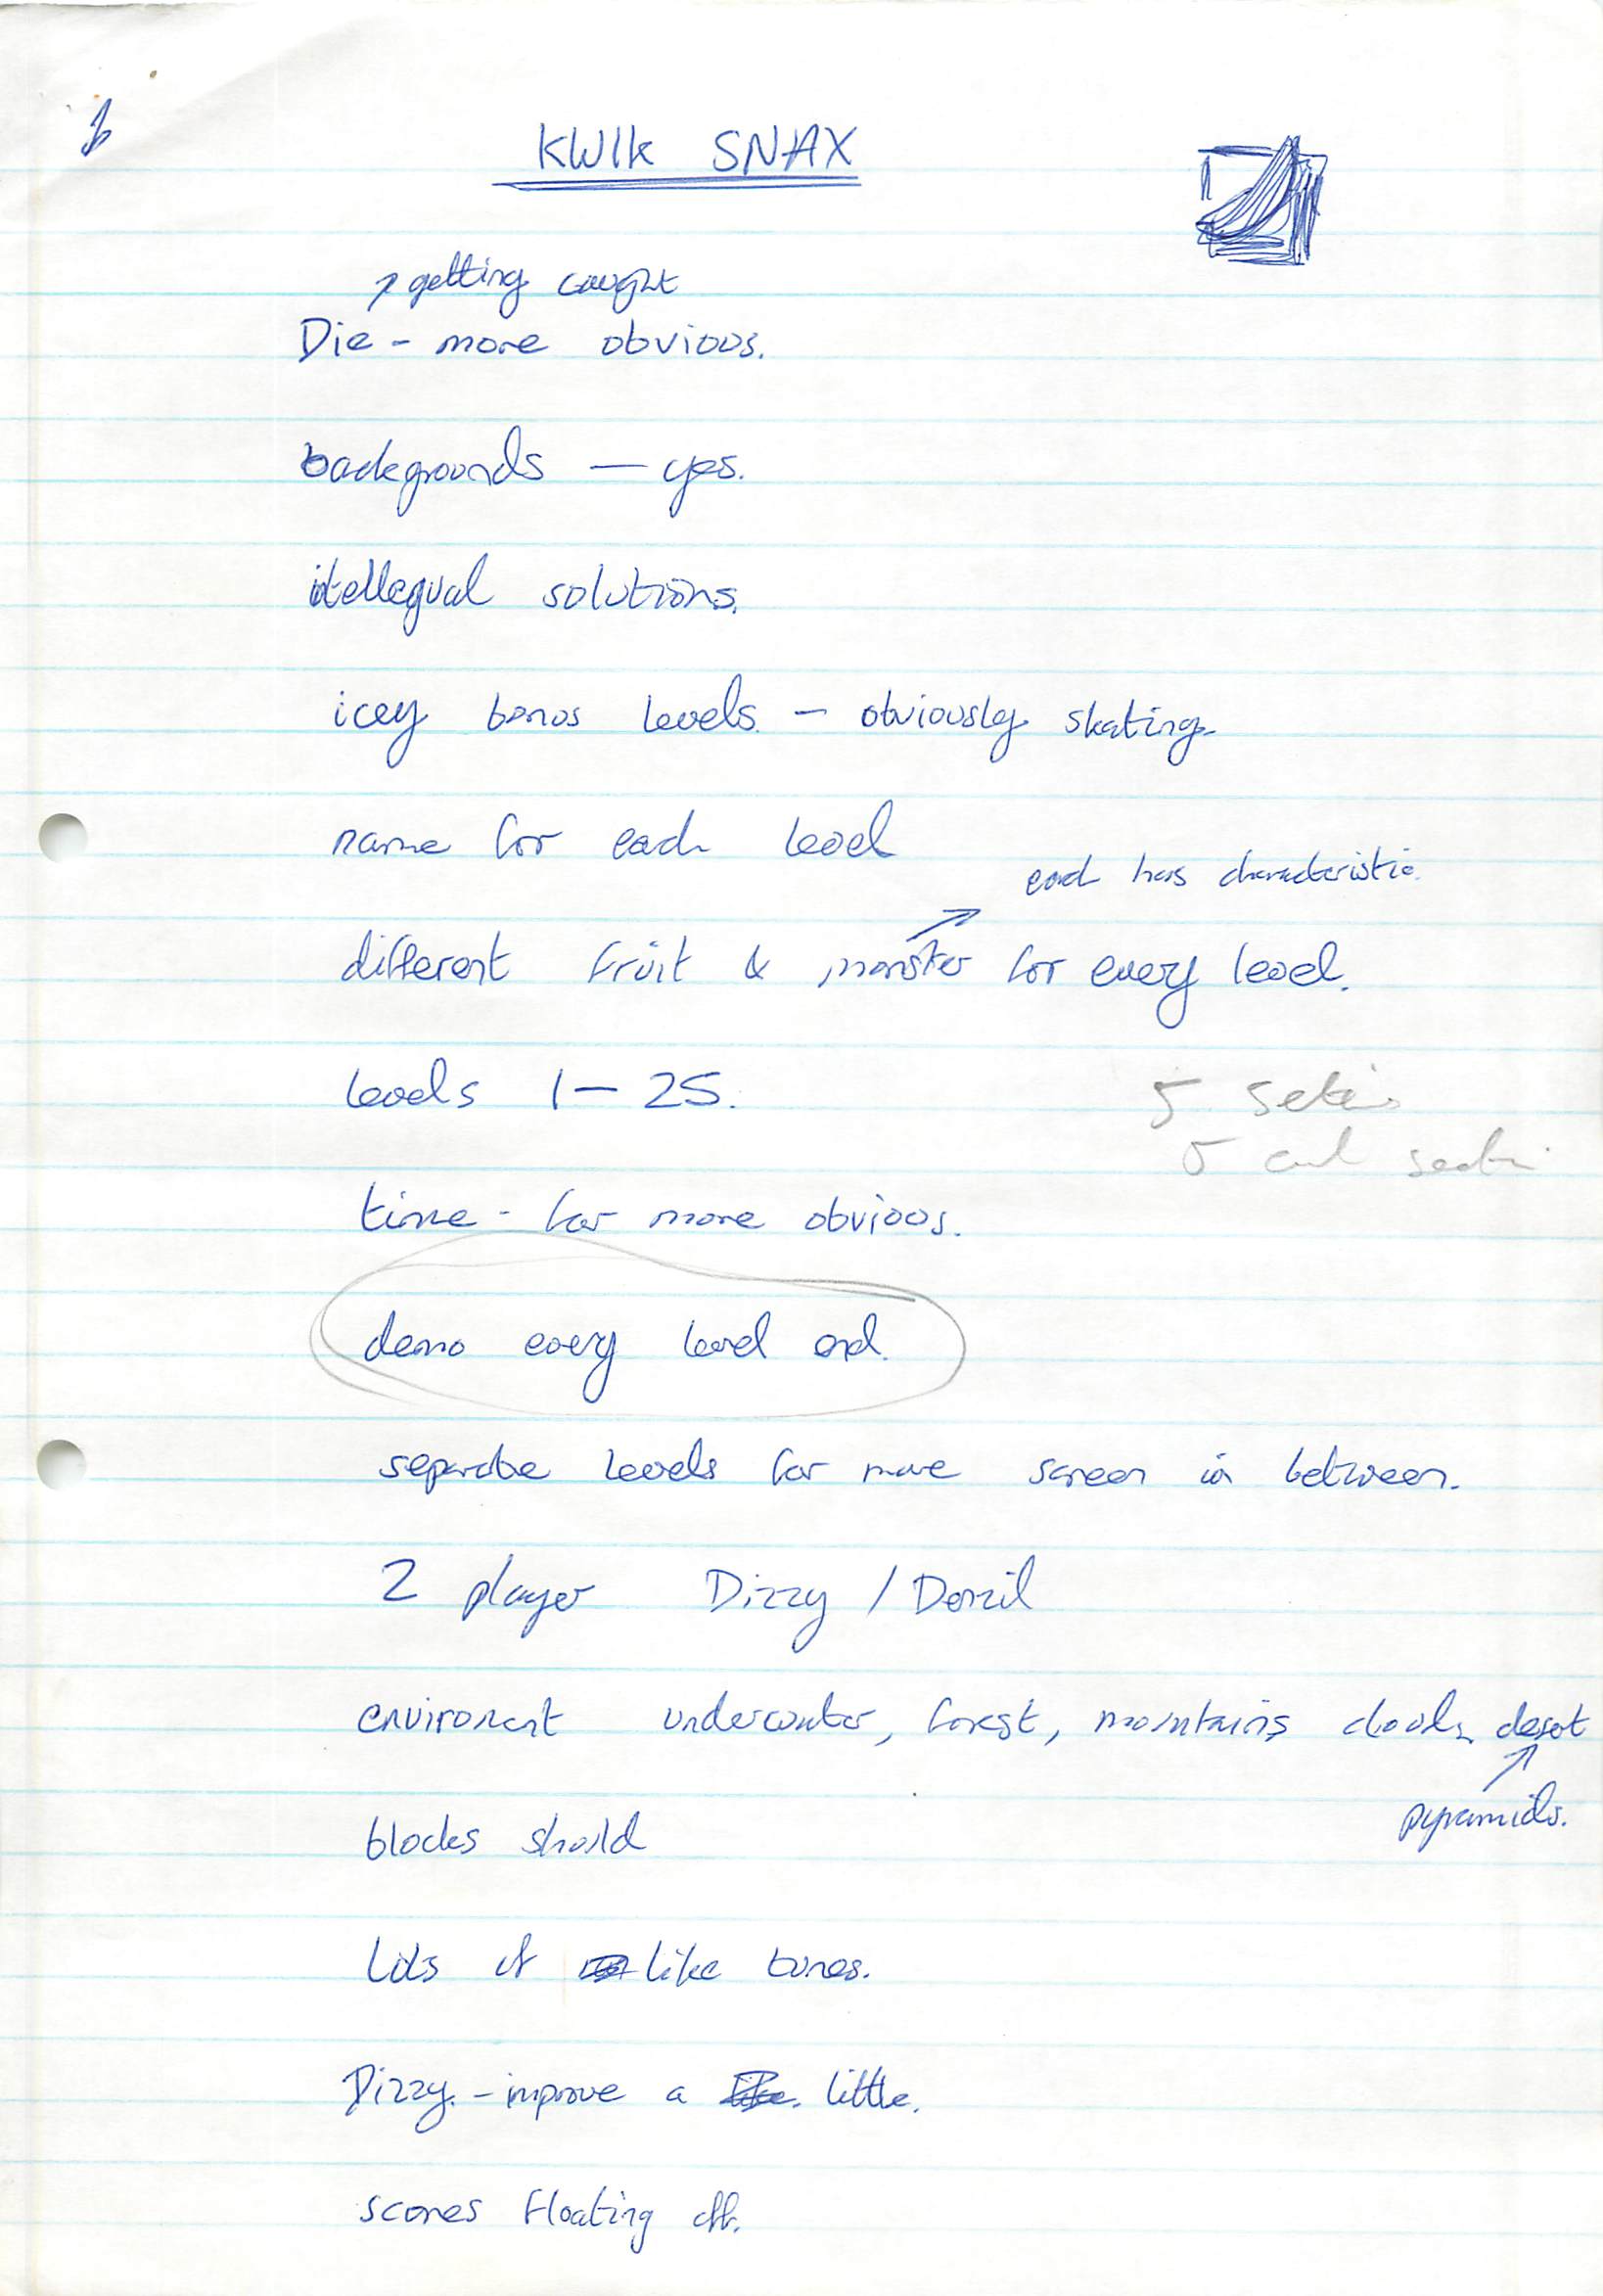 KWIK SNAX
getting caught
Die - more obvious.
backgrounds — yes.
itellegual solutions.
icey bonus levels - obviously skating.
name for each level
each has characteristic.
different fruit & monster for every level.
levels 1 - 25.
5
5
time - far more obvious.
demo every level end.
separate levels far more screen in between.
2 player Dizzy / Denzil
enviroment underwater, forest, mountains clouds, desert
pyramids.
blocks should
Lots of like tunes.
Dizzy. - improve a little.
scores floating off.